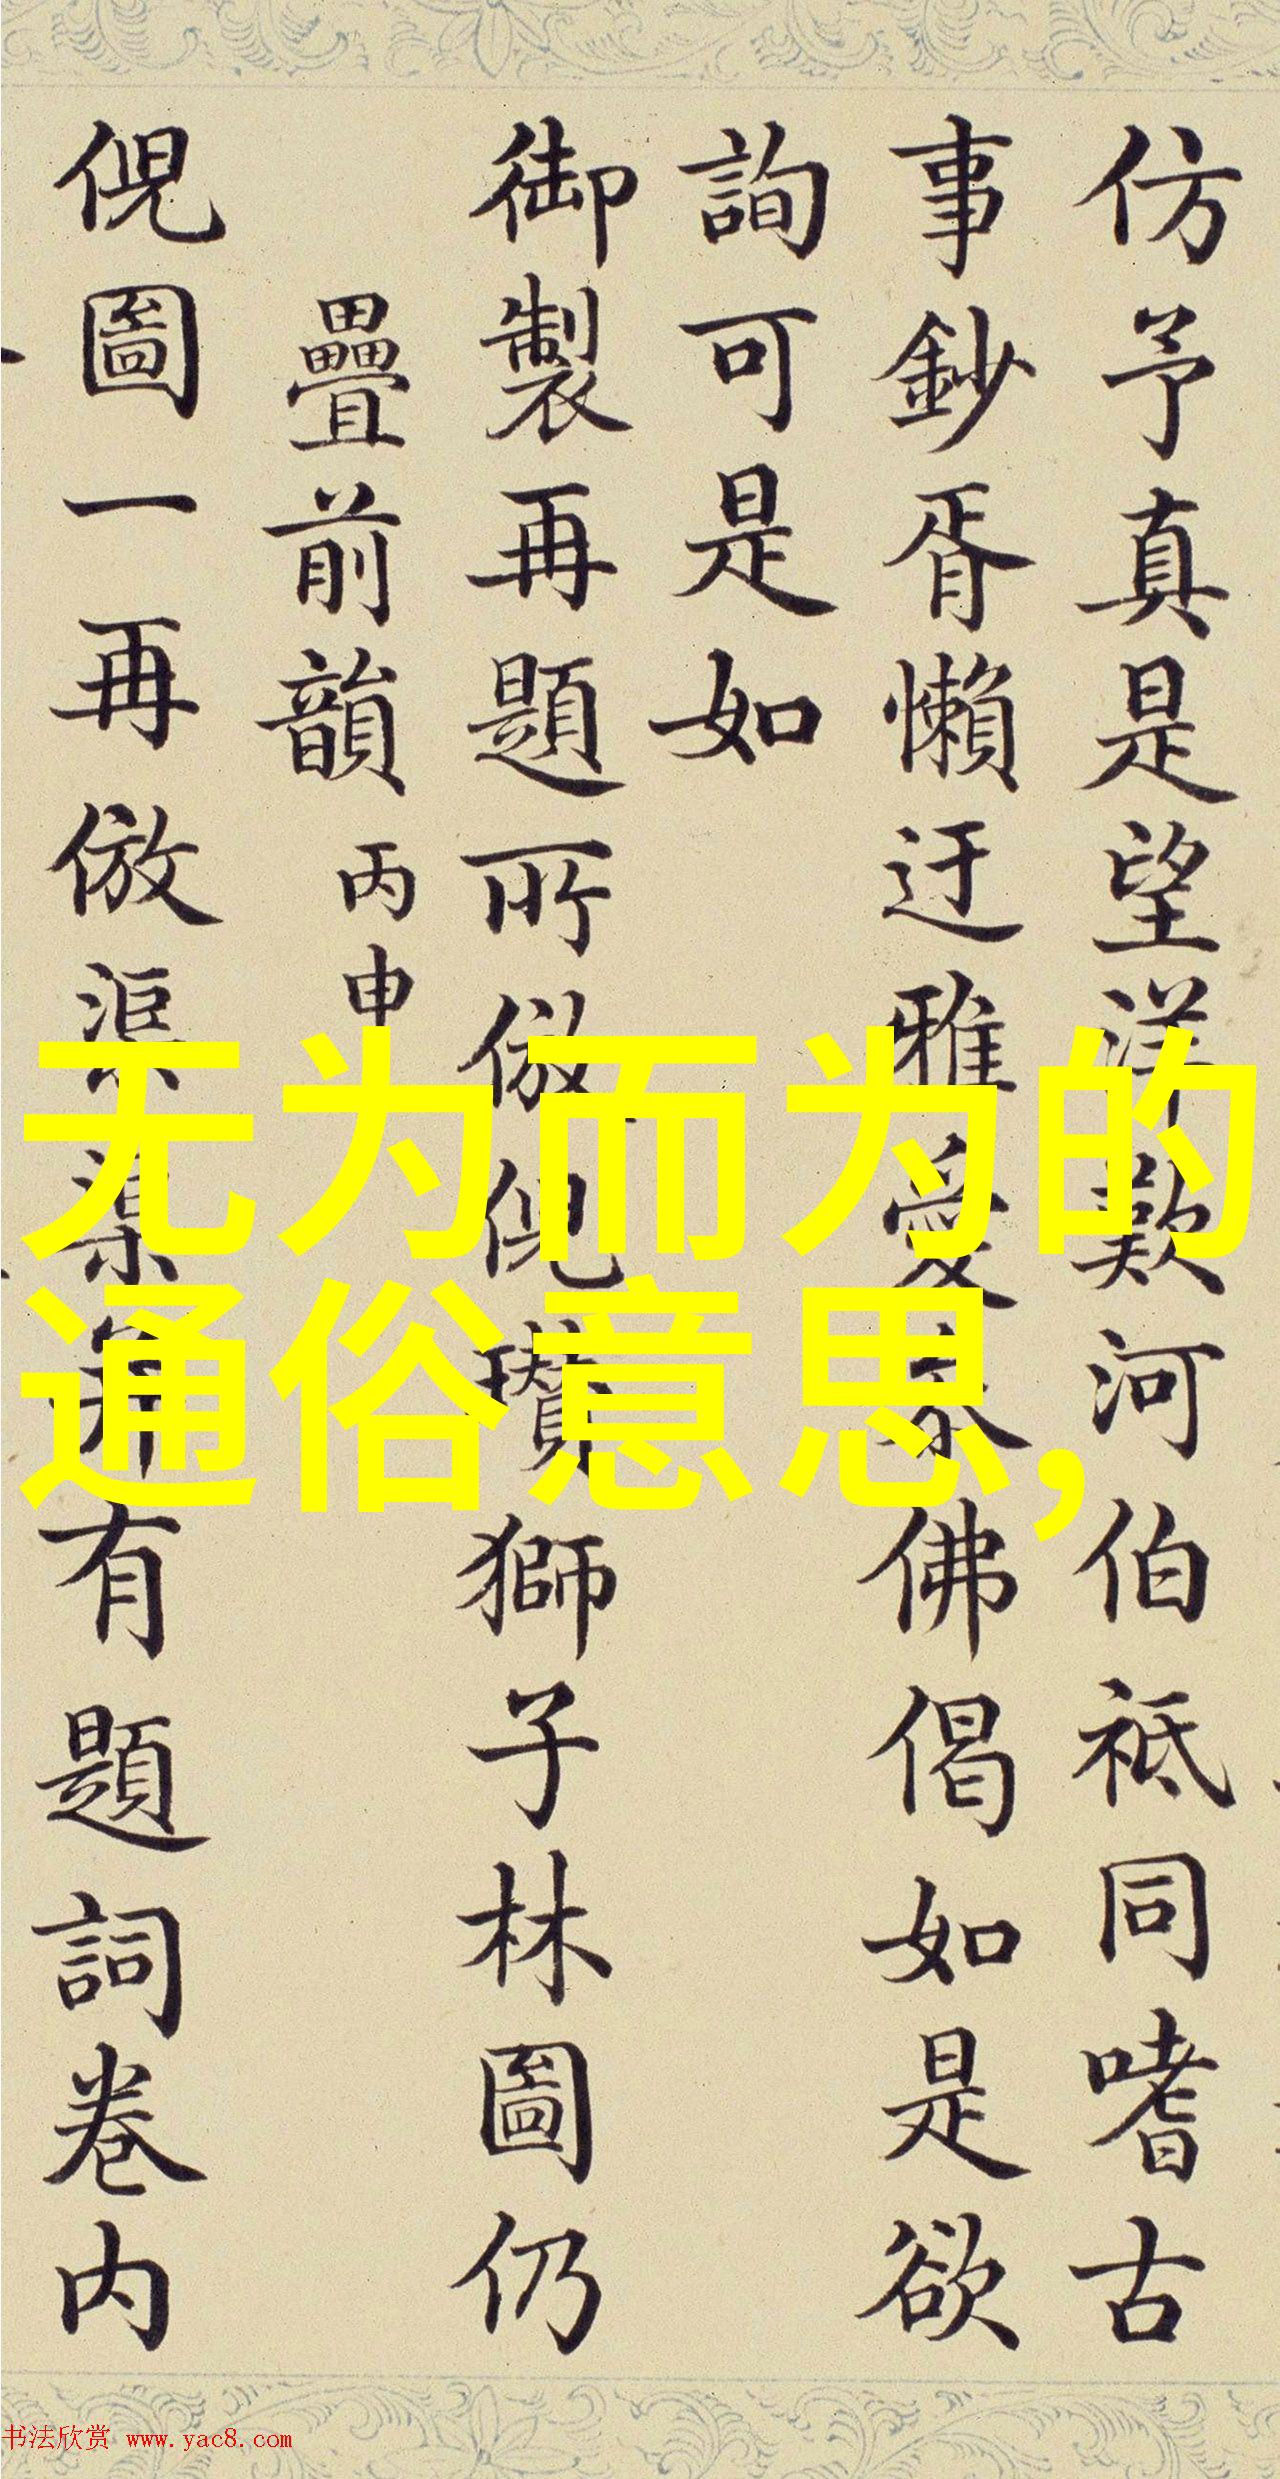 仿予真是望洋歎河伯祗同嗜古
事鈔胥懶迂雅愛泰佛偈如是欲
詢可是如
御製再題所倣倪瓚獅子林圖仍
疊前韻 丙申
倪圖一再倣有題詞卷內
无为而为的
通俗意思,
书法欣赏 www.yac8.com